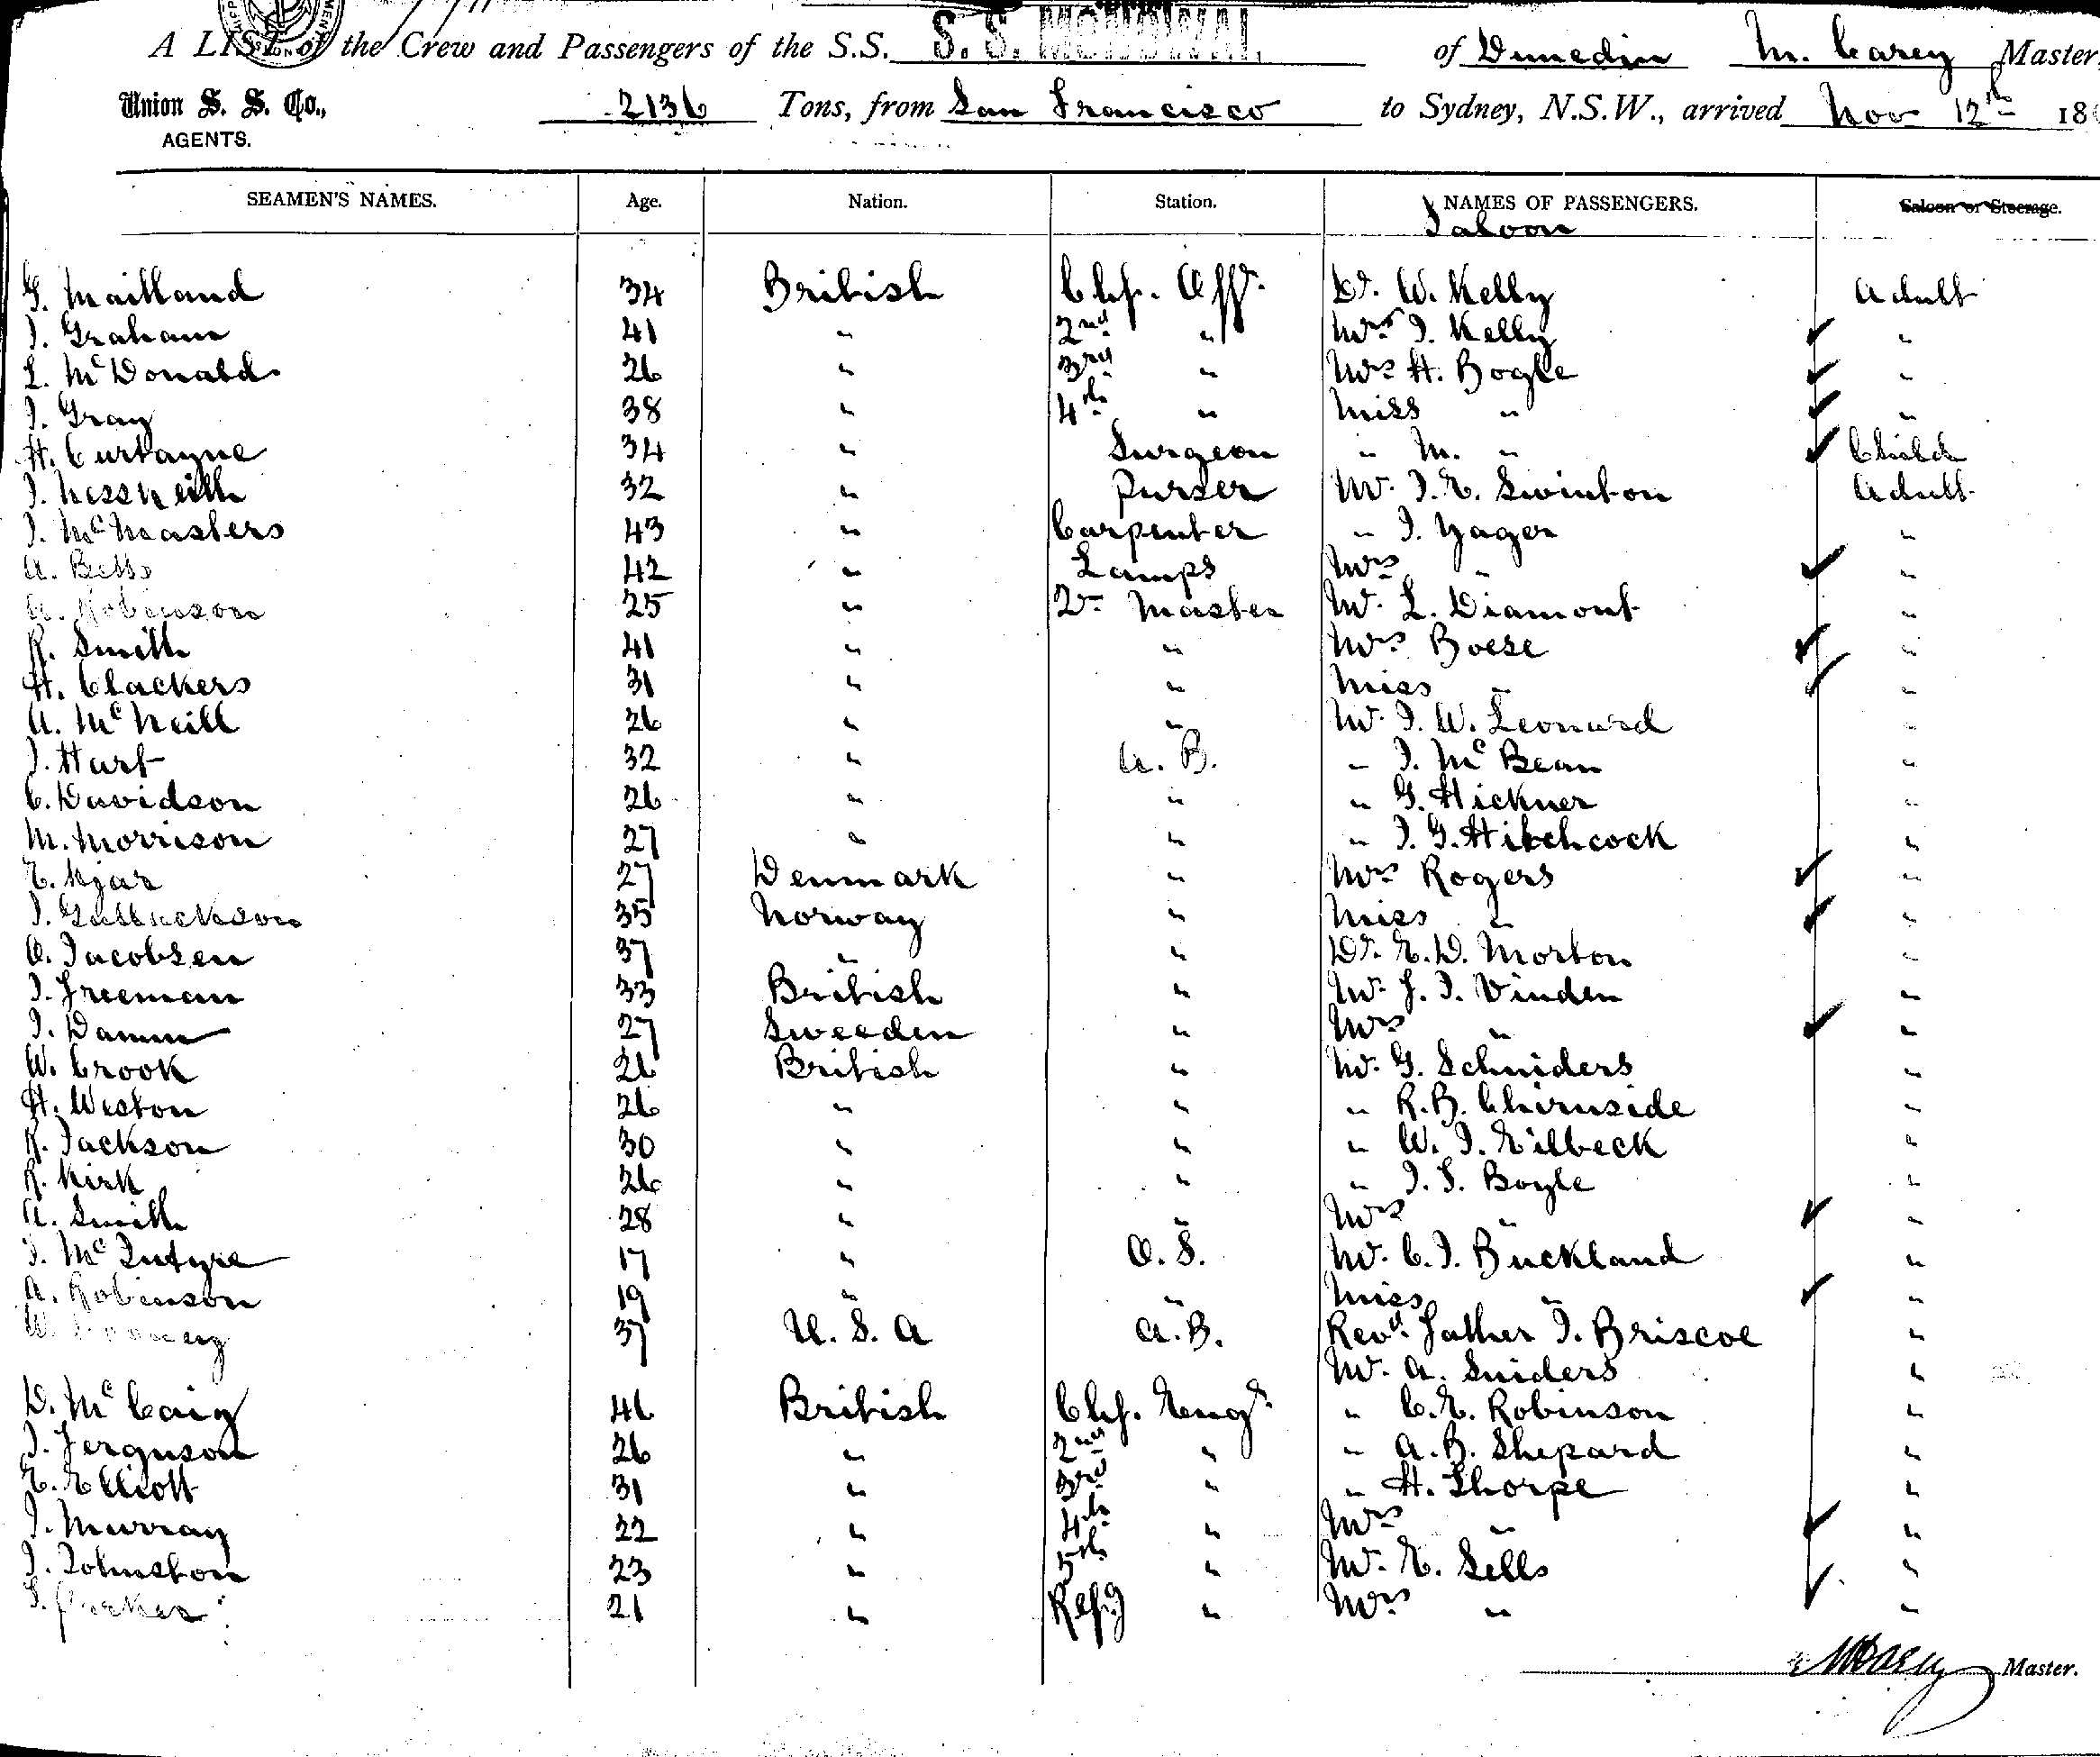 A LIST of the Crew and Passengers of the S.S. S. S. MONOWAI. of Dunedin M. Carey Master,
Union S. S. Co., 2136 Tons, from San Francisco to Sydney, N.S.W., arrived Nov 12th 18
AGENTS.
SEAMEN'S NAMES. Age. Nation. Station. NAMES OF PASSENGERS. Saloon or Steerage.
Saloon
G. Maitland 34 British Chf. Offr. Dr. W. Kelly Adult
J. Graham 41 " 2nd " Mrs J. Kelly "
L. McDonald 26 " 3rd " Mrs H. Bogle "
J. Gray 38 " 4th " Miss " "
H. Curtayne 34 " Surgeon " M. " Child
J. 32 " Purser Mr. J. E. Swinton Adult
J. McMasters 43 " Carpenter " J. Yager "
A. Betts 42 " Lamps Mrs " "
A. Robinson 25 " Qr Master Mr. L. Diamont "
R. Smith 41 " " Mrs Boese "
H. Clackers 31 " " Miss " "
A. McNeill 26 " " Mr. J. W. Leonard "
J. Hart 32 " A. B. " J. McBean "
C. Davidson 26 " " " G. Hickner "
M. Morrison 27 " " " J. G. Hitchcock "
E. Kjar 27 Denmark " Mrs Rogers "
J. 35 Norway " Miss " "
O. Jacobsen 37 " " Dr. E. D. Morton "
J. Freeman 33 British " Mr. F. J. Vinden "
J. Damm 27 Sweeden " Mrs " "
W. Crook 26 British " Mr. G. Schniders "
H. Weston 26 " " " R. B. Chirnside "
R. Jackson 30 " " " W. J. Eilbeck "
R. Kirk 26 " " " J. S. Boyle "
A. Smith 28 " " Mrs " "
J. McIntyre 17 " O. S. Mr. C. J. Buckland "
A. Robinson 19 " " Miss " "
W. 37 U. S. A A. B. Revd. Father J. Briscoe "
Mr. A. Sniders "
D. McCaig 46 British Chf. Engr. " C. E. Robinson "
J. Ferguson 26 " 2nd " " A. B. Shepard "
E. Elliott 31 " 3rd " " H. Thorpe "
J. Murray 22 " 4th " Mrs " "
J. Johnston 23 " 5th " Mr. E. Sells "
S. Parker 21 " Refg " Mrs " "
M Carey Master.